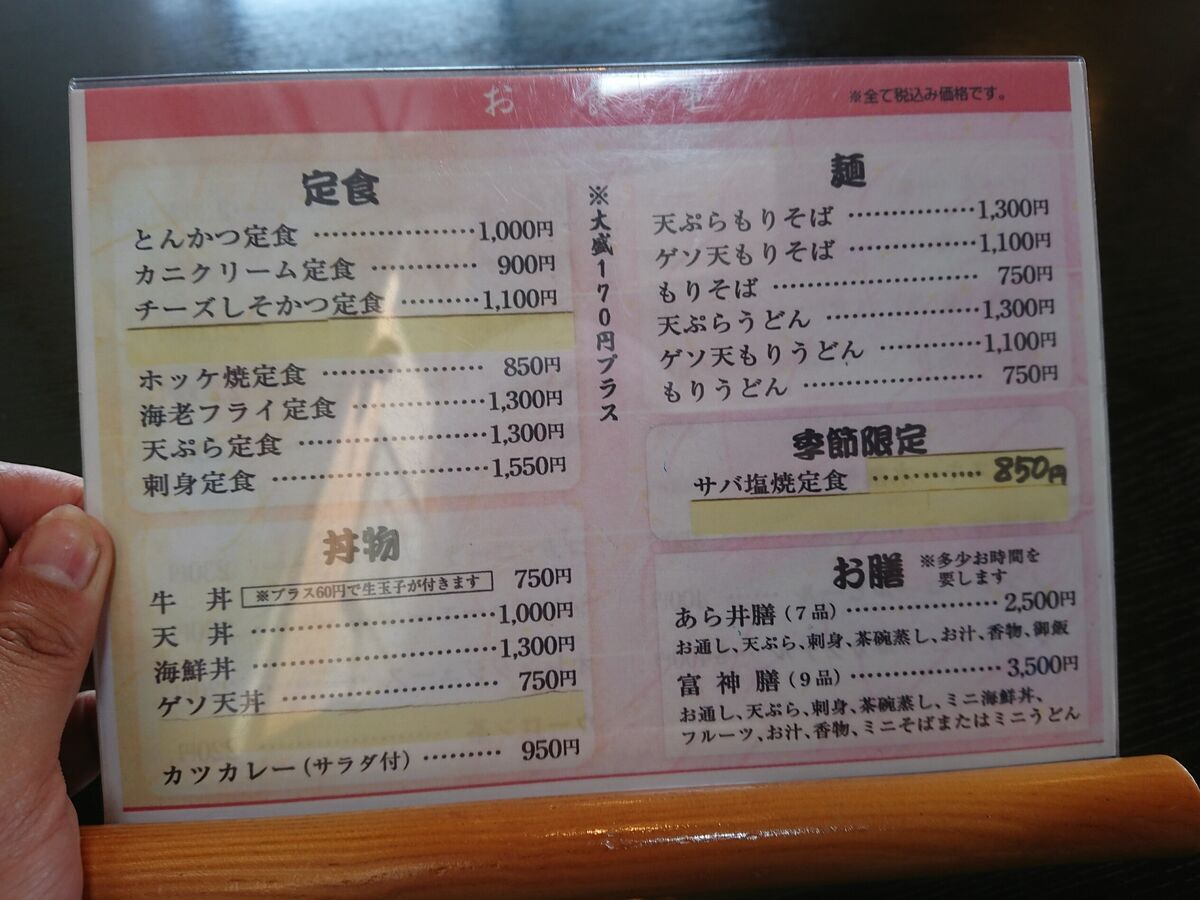 お食事
※全て税込み価格です。
定食
とんかつ定食 ………………1,000円
カニクリーム定食 ………… 900円
チーズしそかつ定食 ………1,100円
ホッケ焼定食 ……………… 850円
海老フライ定食 ……………1,300円
天ぷら定食 …………………1,300円
刺身定食 ……………………1,550円
※大盛170円プラス
丼物
牛丼 ※プラス60円で生玉子が付きます 750円
天丼 …………………………1,000円
海鮮丼 ………………………1,300円
ゲソ天丼 …………………… 750円
カツカレー(サラダ付) ……… 950円
麺
天ぷらもりそば ……………1,300円
ゲソ天もりそば ……………1,100円
もりそば …………………… 750円
天ぷらうどん ………………1,300円
ゲソ天もりうどん …………1,100円
もりうどん ………………… 750円
季節限定
サバ塩焼定食 ………… 850円
お膳 ※多少お時間を
要します
あら井膳(7品) ………………2,500円
お通し、天ぷら、刺身、茶碗蒸し、お汁、香物、御飯
富神膳(9品) ………………3,500円
お通し、天ぷら、刺身、茶碗蒸し、ミニ海鮮丼、
フルーツ、お汁、香物、ミニそばまたはミニうどん